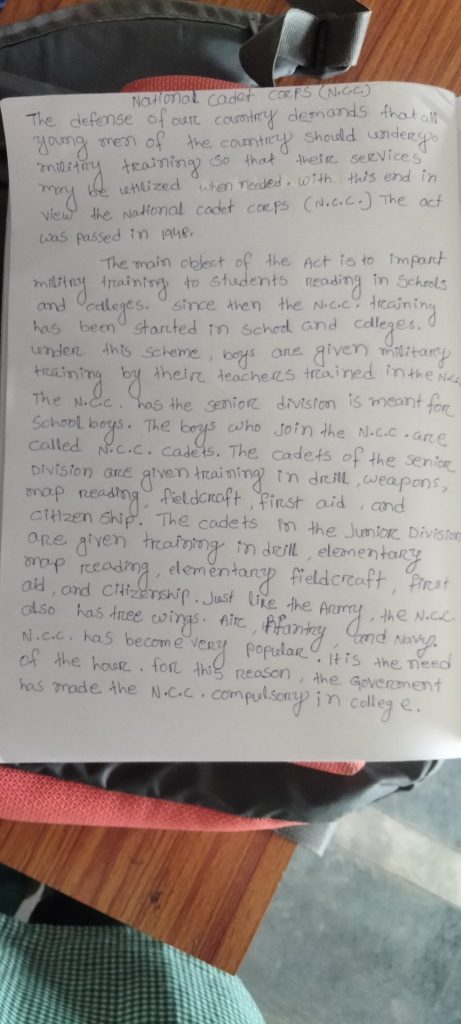 National Cadet Corps (N.C.C.)
The defense of our country demands that all
young men of the country should undergo
militry training so that their services
may be utilized when needed. with this end in
view the National cadet corps (N.C.C.) The act
was passed in 1948.
The main object of the Act is to impart
militry training to students reading in Schools
and colleges. since then the N.C.C. training
has been started in school and colleges.
under this scheme, boys are given military
training by their teachers trained in the N.C.C.
The N.C.C. has the senior division is meant for
School boys. The boys who join the N.C.C. are
called N.C.C. cadets. The cadets of the senior
Division are given training in drill, weapons,
map reading, fieldcraft, first aid, and
citizen ship. The cadets in the Junior Division
are given training in drill, elementary
map reading, elementary fieldcraft, first
aid, and citizenship. Just like the Army, the N.C.C.
also has tree wings. Air, Ifantry, and Navy.
N.C.C. has become very popular. It is the need
of the hour. for this reason, the Goverment
has made the N.C.C. compulsory in college.